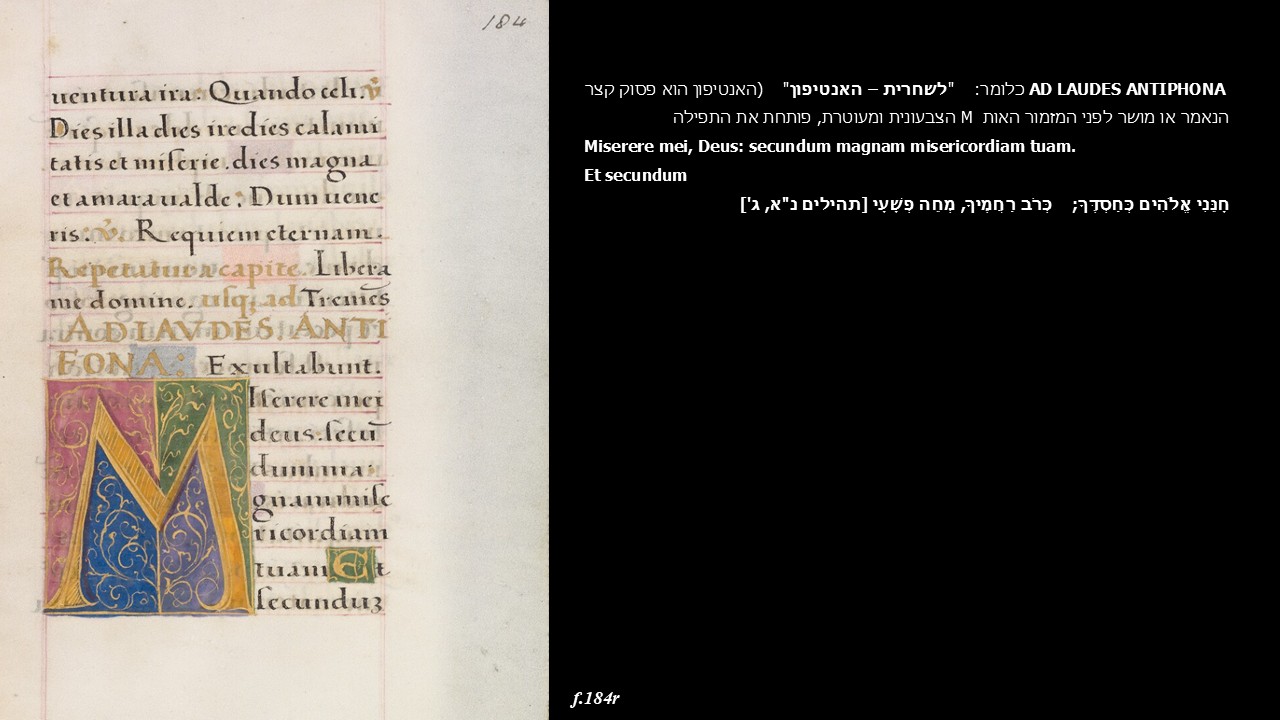 184
uentura ira. Quando celi. v̇
Dies illa dies ire dies calami
tatis et miserie. dies magna
et amara ualde: Dum uene
ris: v̇. Requiem eternam:
Repetatur a capite. Libera
me domine. usq; ad Tremēs
AD LAVDES. ANTI
FONA: Exultabunt.
MIserere mei
deus. secū
dum ma:
gnam mise
ricordiam
tuam Et
secunduz
AD LAUDES ANTIPHONA כלומר: "לשחרית – האנטיפון" (האנטיפון הוא פסוק קצר
הנאמר או מושר לפני המזמור האות M הצבעונית ומעוטרת, פותחת את התפילה
Miserere mei, Deus: secundum magnam misericordiam tuam.
Et secundum
חָנֵּנִי אֱלֹהִים כְּחַסְדֶּךָ; כְּרֹב רַחֲמֶיךָ, מְחֵה פְשָׁעָי [תהילים נ"א, ג']
f.184r